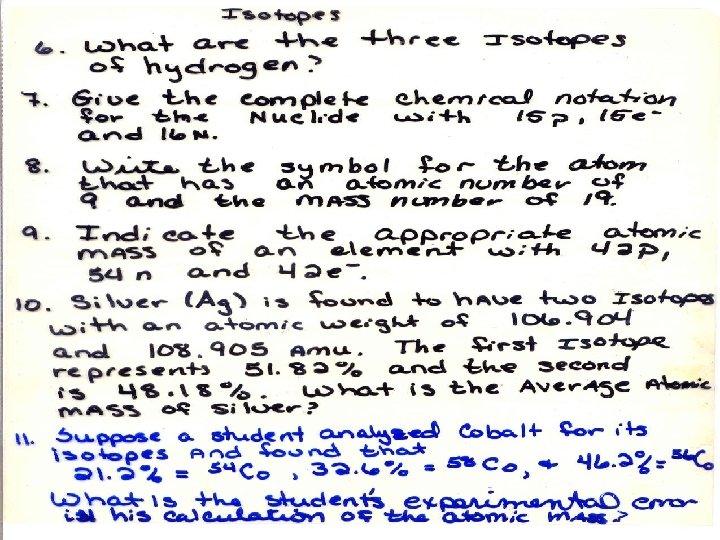 Isotopes
6. What are the three Isotopes
of hydrogen?
7. Give the complete chemical notation
for the Nuclide with 15p, 15e-
and 16N.
8. Write the symbol for the atom
that has an atomic number of
9 and the mass number of 19.
9. Indicate the appropriate atomic
mass of an element with 42p,
54n and 42e-.
10. Silver (Ag) is found to have two Isotopes
with an atomic weight of 106.904
and 108.905 amu. The first Isotope
represents 51.82% and the second
is 48.18%. What is the Average Atomic
mass of silver?
11. Suppose a student analyzed Cobalt for its
isotopes and found that
21.2% = 54Co, 32.6% = 58Co, + 46.2% = 56Co
What is the student's experimental error
in his calculation of the atomic mass?